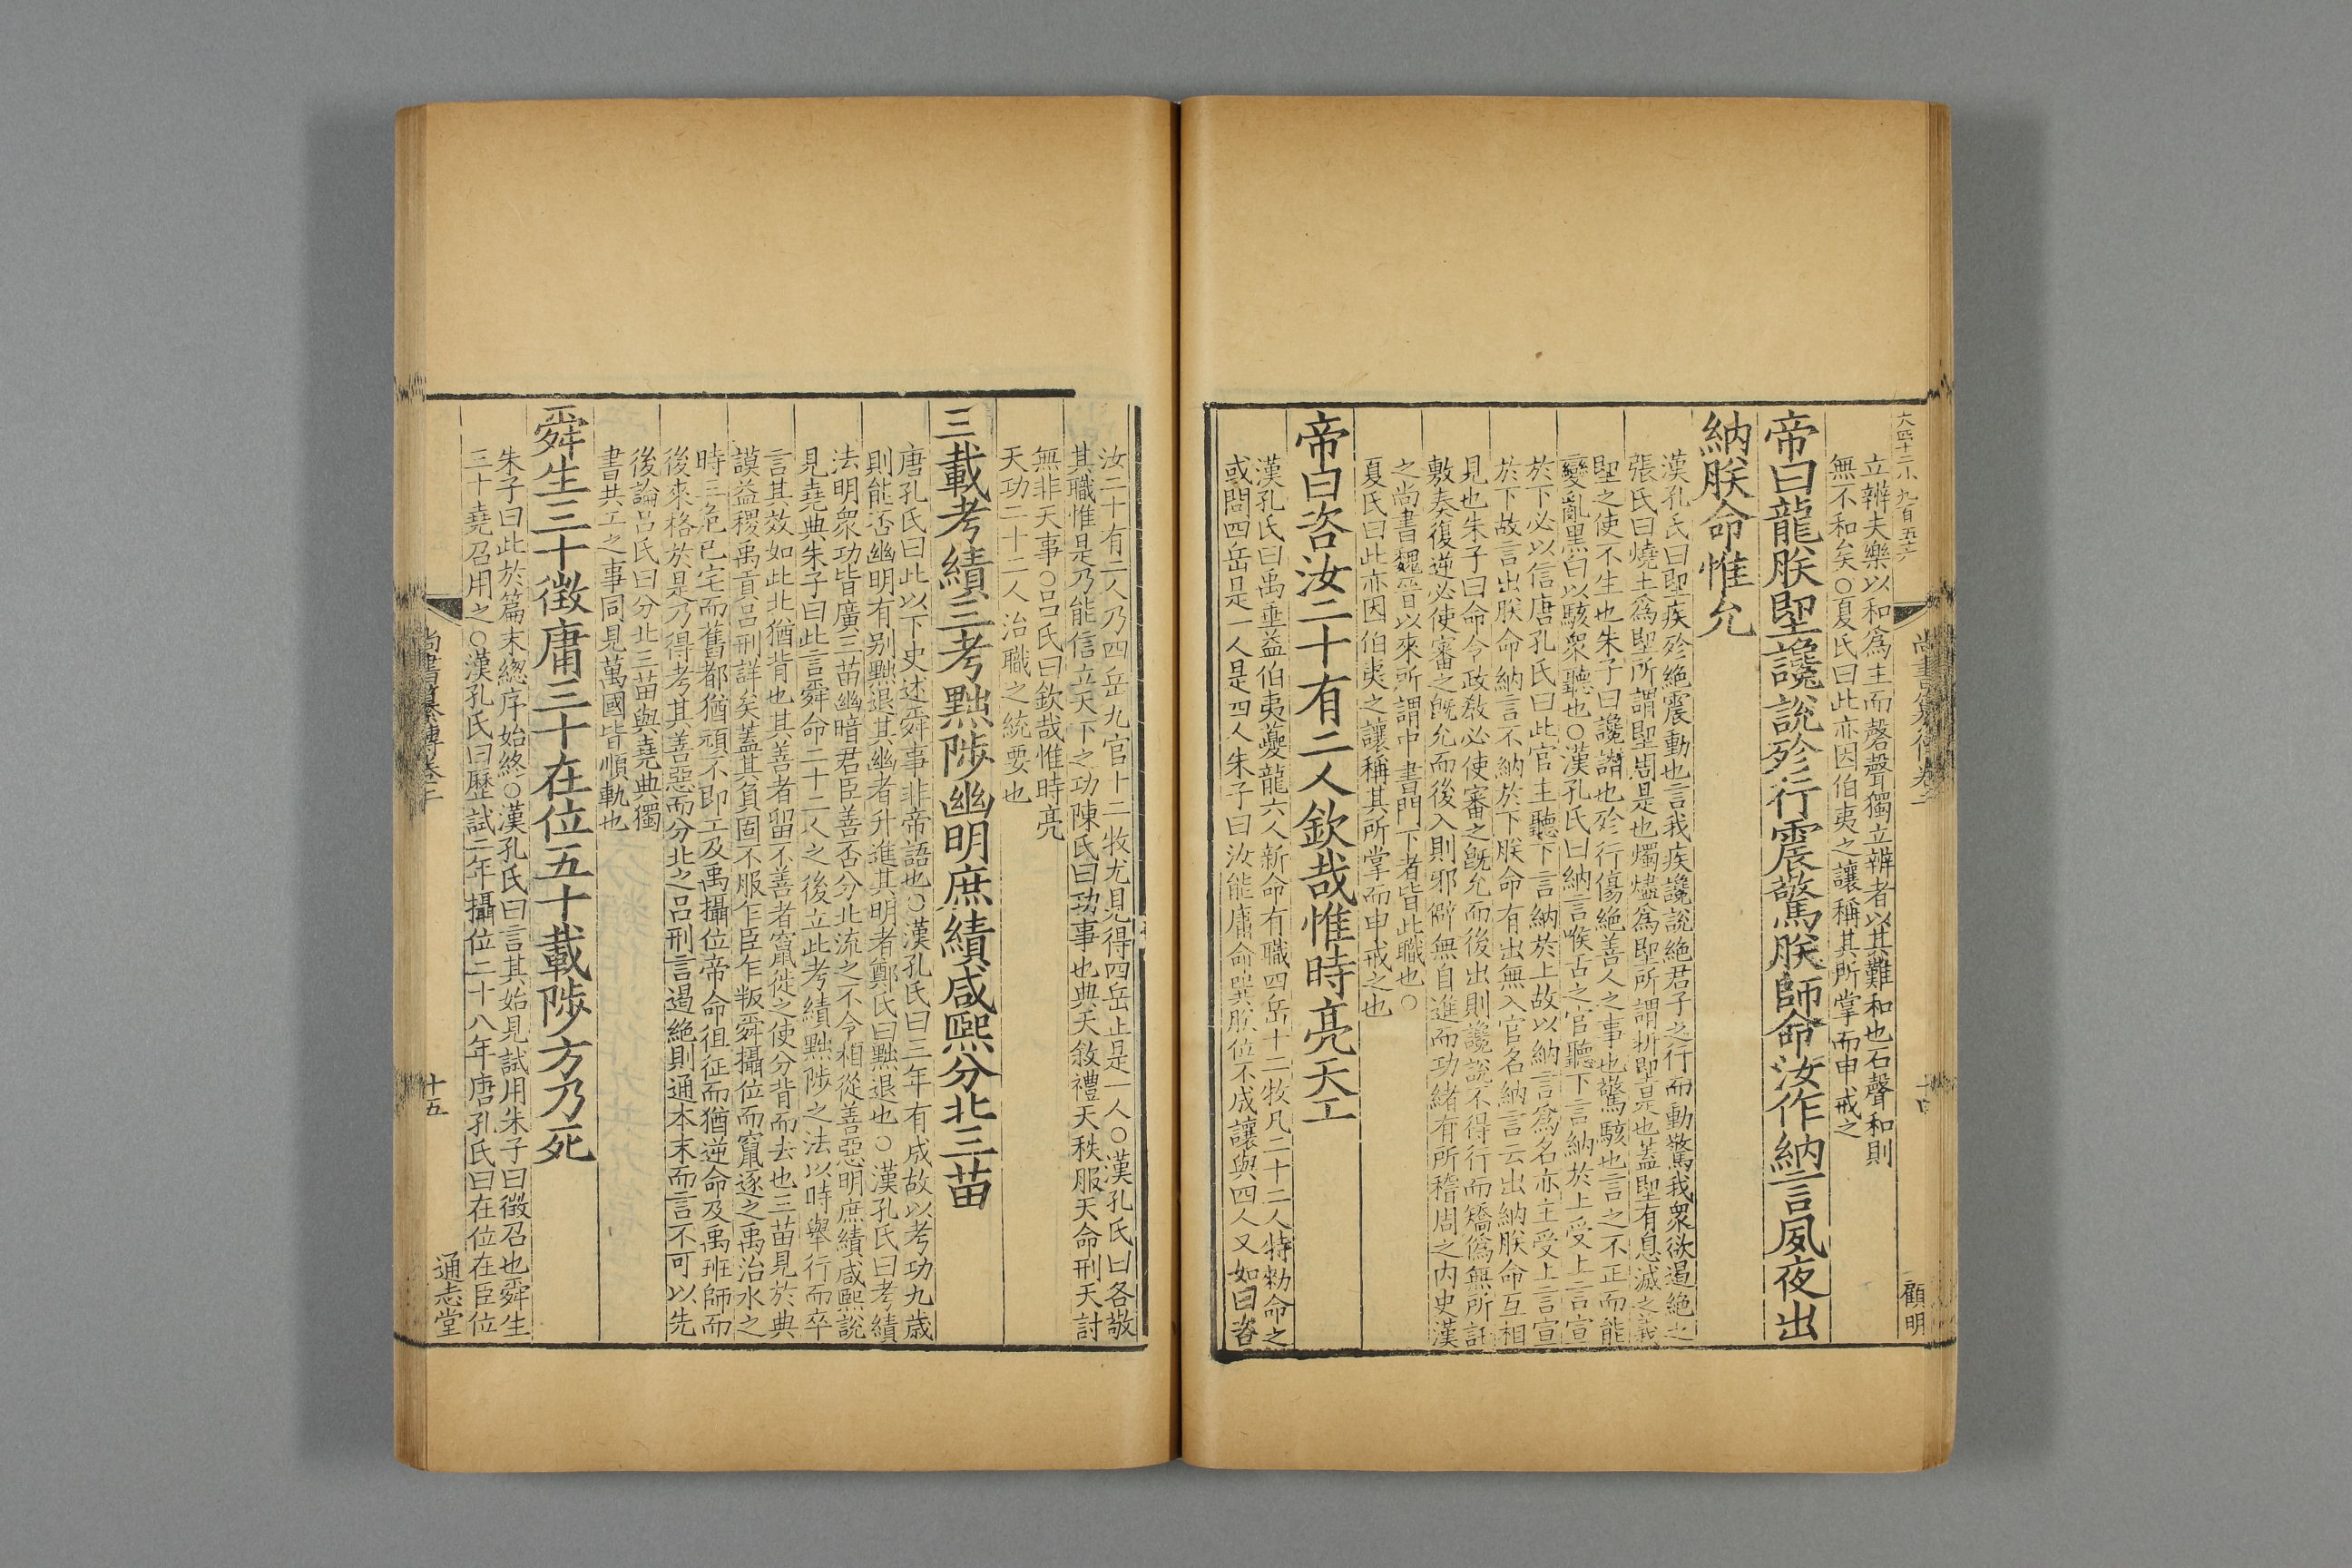 尚書纂傳卷二
十四
顧明
立辨夫樂以和為主而磬聲獨立辨者以其難和也石聲和則
無不和矣○夏氏曰此亦因伯夷之讓稱其所掌而申戒之
帝曰龍朕堲讒說殄行震驚朕師命汝作納言夙夜出
納朕命惟允
漢孔氏曰堲疾殄絕震動也言我疾讒說絕君子之行而動驚我衆欲遏絕之
張氏曰燒土為堲所謂堲周是也燭燼為堲所謂折堲是也蓋堲有息滅之義
堲之使不生也朱子曰讒譖也殄行傷絕善人之事也驚駭也言之不正而能
變亂黑白以駭衆聽也○漢孔氏曰納言喉舌之官聽下言納於上受上言宣
於下必以信唐孔氏曰此官主聽下言納於上故以納言為名亦主受上言宣
於下故言出朕命納言不納於下朕命有出無入官名納言云出納朕命互相
見也朱子曰命令政教必使審之旣允而後出則讒說不得行而矯偽無所託
敷奏復逆必使審之旣允而後入則邪僻無自進而功緒有所稽周之內史漢
之尚書魏晉以來所謂中書門下者皆此職也○
夏氏曰此亦因伯夷之讓稱其所掌而申戒之也
帝曰咨汝二十有二人欽哉惟時亮天工
漢孔氏曰禹垂益伯夷夔龍六人新命有職四岳十二牧凡二十二人特勑命之
或問四岳是一人是四人朱子曰汝能庸命巽朕位不成讓與四人又如曰咨
汝二十有二人乃四岳九官十二牧尤見得四岳止是一人○漢孔氏曰各敬
其職惟是乃能信立天下之功陳氏曰功事也典天敘禮天秩服天命刑天討
無非天事○呂氏曰欽哉惟時亮
天功二十二人治職之統要也
三載考績三考黜陟幽明庶績咸熙分北三苗
唐孔氏曰此以下史述舜事非帝語也○漢孔氏曰三年有成故以考功九歲
則能否幽明有別黜退其幽者升進其明者鄭氏曰黜退也○漢孔氏曰考績
法明衆功皆廣三苗幽暗君臣善否分北流之不令相從善惡明庶績咸熙說
見堯典朱子曰此言舜命二十二人之後立此考績黜陟之法以時舉行而卒
言其效如此北猶背也其善者留不善者竄徙之使分背而去也三苗見於典
謨益稷禹貢呂刑詳矣蓋其負固不服乍臣乍叛舜攝位而竄逐之禹治水之
時三危已宅而舊都猶頑不即工及禹攝位帝命徂征而猶逆命及禹班師而
後來格於是乃得考其善惡而分北之呂刑言遏絕則通本末而言不可以先
後論呂氏曰分北三苗與堯典獨
書共工之事同見萬國皆順軌也
舜生三十徵庸三十在位五十載陟方乃死
朱子曰此於篇末總序始終○漢孔氏曰言其始見試用朱子曰徵召也舜生
三十堯召用之○漢孔氏曰歷試二年攝位二十八年唐孔氏曰在位在臣位
尚書纂傳卷二
十五
通志堂